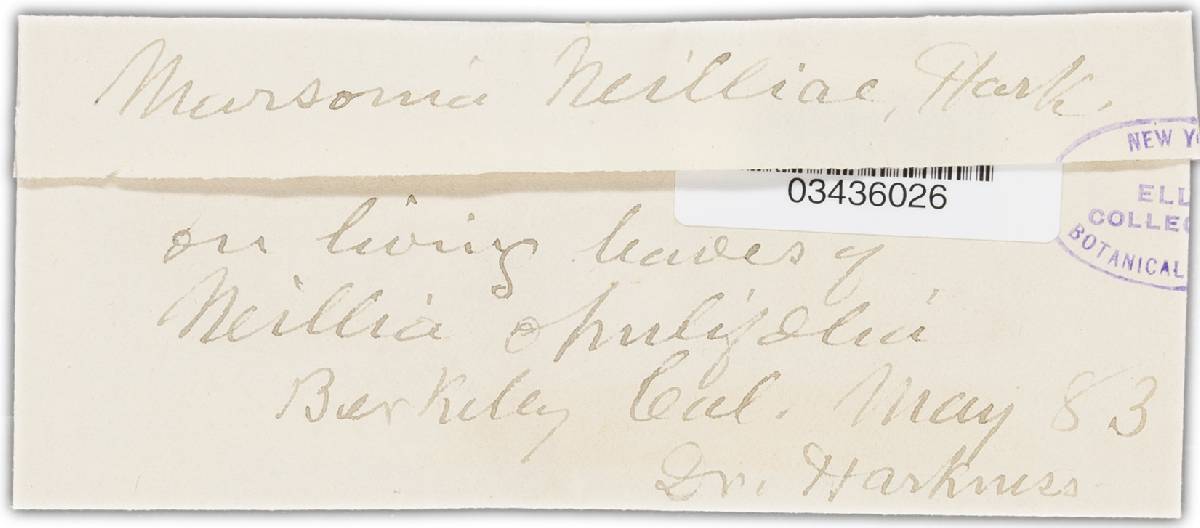 Marsonia Neilliae, Hark.
NEW Y
ELL
COLLEC
BOTANICAL
03436026
on living leaves of
Neillia opulifolia
Berkeley Cal. May 83
Dr. Harkness